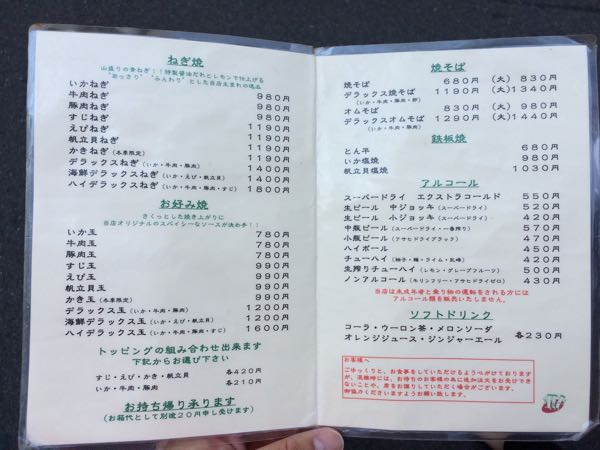 ねぎ焼
山盛りの青ねぎ！！特製醤油だれとレモンで仕上げる
"あっさり" "ふんわり"とした当店生まれの逸品
いかねぎ 980円
牛肉ねぎ 980円
豚肉ねぎ 980円
すじねぎ 1190円
えびねぎ 1190円
帆立貝ねぎ 1190円
かきねぎ(冬季限定) 1190円
デラックスねぎ(いか・牛肉・豚肉) 1400円
海鮮デラックスねぎ(いか・えび・帆立貝) 1400円
ハイデラックスねぎ(いか・牛肉・豚肉・すじ) 1800円
お好み焼
さくっとした焼き上がりに
当店オリジナルのスパイシーなソースが決め手！！
いか玉 780円
牛肉玉 780円
豚肉玉 780円
すじ玉 990円
えび玉 990円
帆立貝玉 990円
かき玉(冬季限定) 990円
デラックス玉(いか・牛肉・豚肉) 1200円
海鮮デラックス玉(いか・えび・帆立貝) 1200円
ハイデラックス玉(いか・牛肉・豚肉・すじ) 1600円
トッピングの組み合わせ出来ます
下記からお選び下さい
すじ・えび・かき・帆立貝 各420円
いか・牛肉・豚肉 各210円
お持ち帰り承ります
(お箱代として別途20円申し受けます)
焼そば
焼そば 680円 (大)830円
デラックス焼そば 1190円 (大)1340円
(いか・牛肉・豚肉・卵)
オムそば 830円 (大)980円
デラックスオムそば 1290円 (大)1440円
(いか・牛肉・豚肉)
鉄板焼
とん平 680円
いか塩焼 980円
帆立貝塩焼 1030円
アルコール
スーパードライ エクストラコールド 550円
生ビール 中ジョッキ(スーパードライ) 520円
生ビール 小ジョッキ(スーパードライ) 420円
中瓶ビール(スーパードライ・一番搾り) 570円
小瓶ビール(アサヒドライブラック) 470円
ハイボール 450円
チューハイ(柚子・梅・ライム・巨峰) 420円
生搾りチューハイ(レモン・グレープフルーツ) 500円
ノンアルコール(キリンフリー・アサヒドライゼロ) 430円
当店は未成年者と乗り物の運転をされる方には
アルコール類を販売いたしません。
ソフトドリンク
コーラ・ウーロン茶・メロンソーダ
オレンジジュース・ジンジャーエール 各230円
お客様へ
ごゆっくりと、お食事をしていただけるよう心がけております
が、混雑時には、お待ちのお客様の為に追加注文をお受けでき
ないことや、席をお譲りしていただく場合がございます。
御協力くださいますようお願い致します。